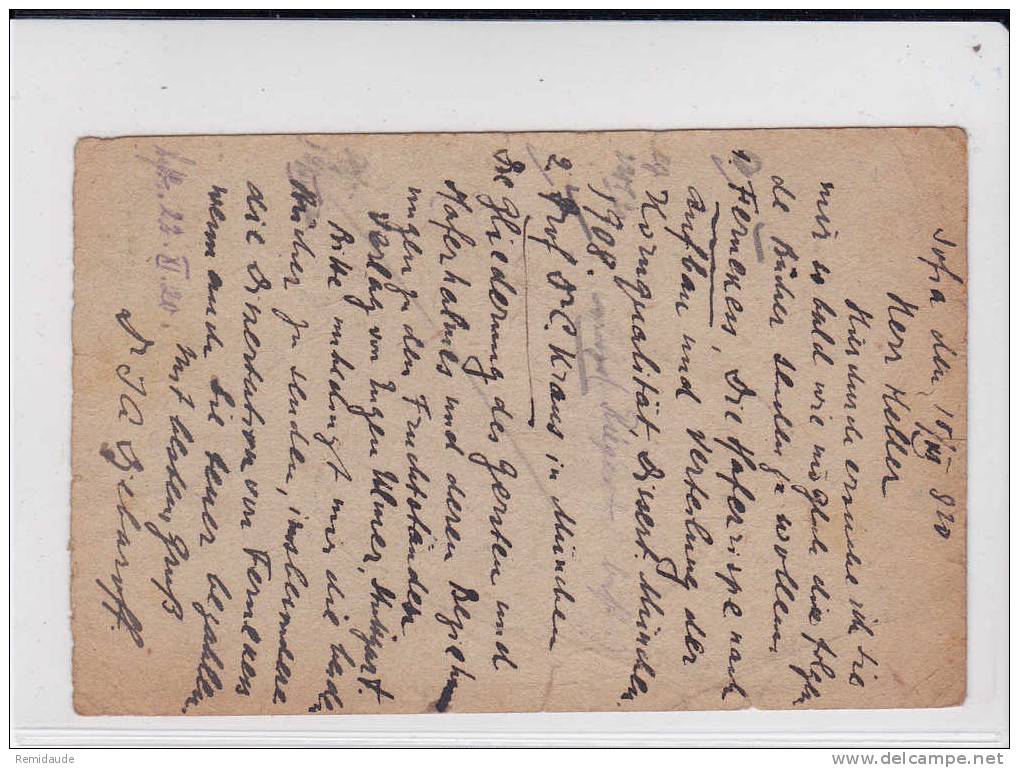 Sofia den 15/XII 920
Herr Keller
Hierdurch ersuche ich Sie
mir so bald wie möglich die folgen
de Bücher senden zu wollen.
1. Fernenes, Die Haferrispe nach
Aufbau und Verteilung der
Kornqualität, Dissert. München
1908.
2. Prof Dr C. Kraus in München
Die Gliederung des Gersten und
Haferhalmes und deren Beziehun
ungen zu den Fruchtständen
Verlag von Eugen Ulmer, Stuttgart.
Bitte unbedingt mir die beide
Bücher zu senden, insbesondere
die Dissertation von Fernenes
wenn auch Sie teuer bezahlen.
Mit besten Gruß
Dr
22. XI. 20.
Remidaude
www.delcampe.net